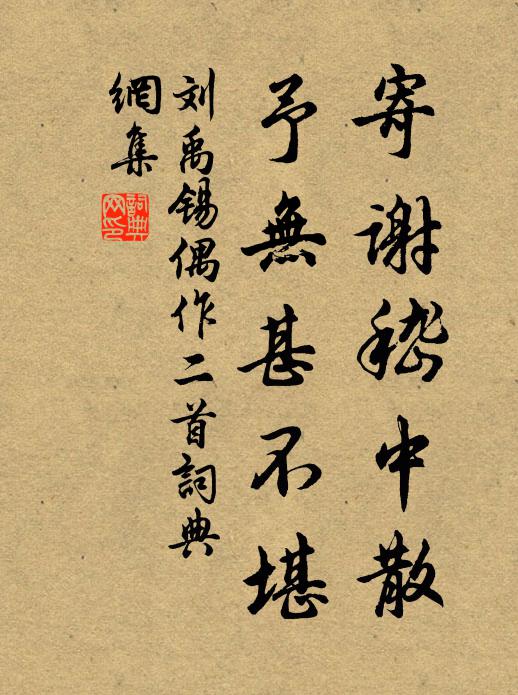 寄谢嵇中散
予無甚不堪
刘禹锡偶作二首詞典
網集
詞典网印